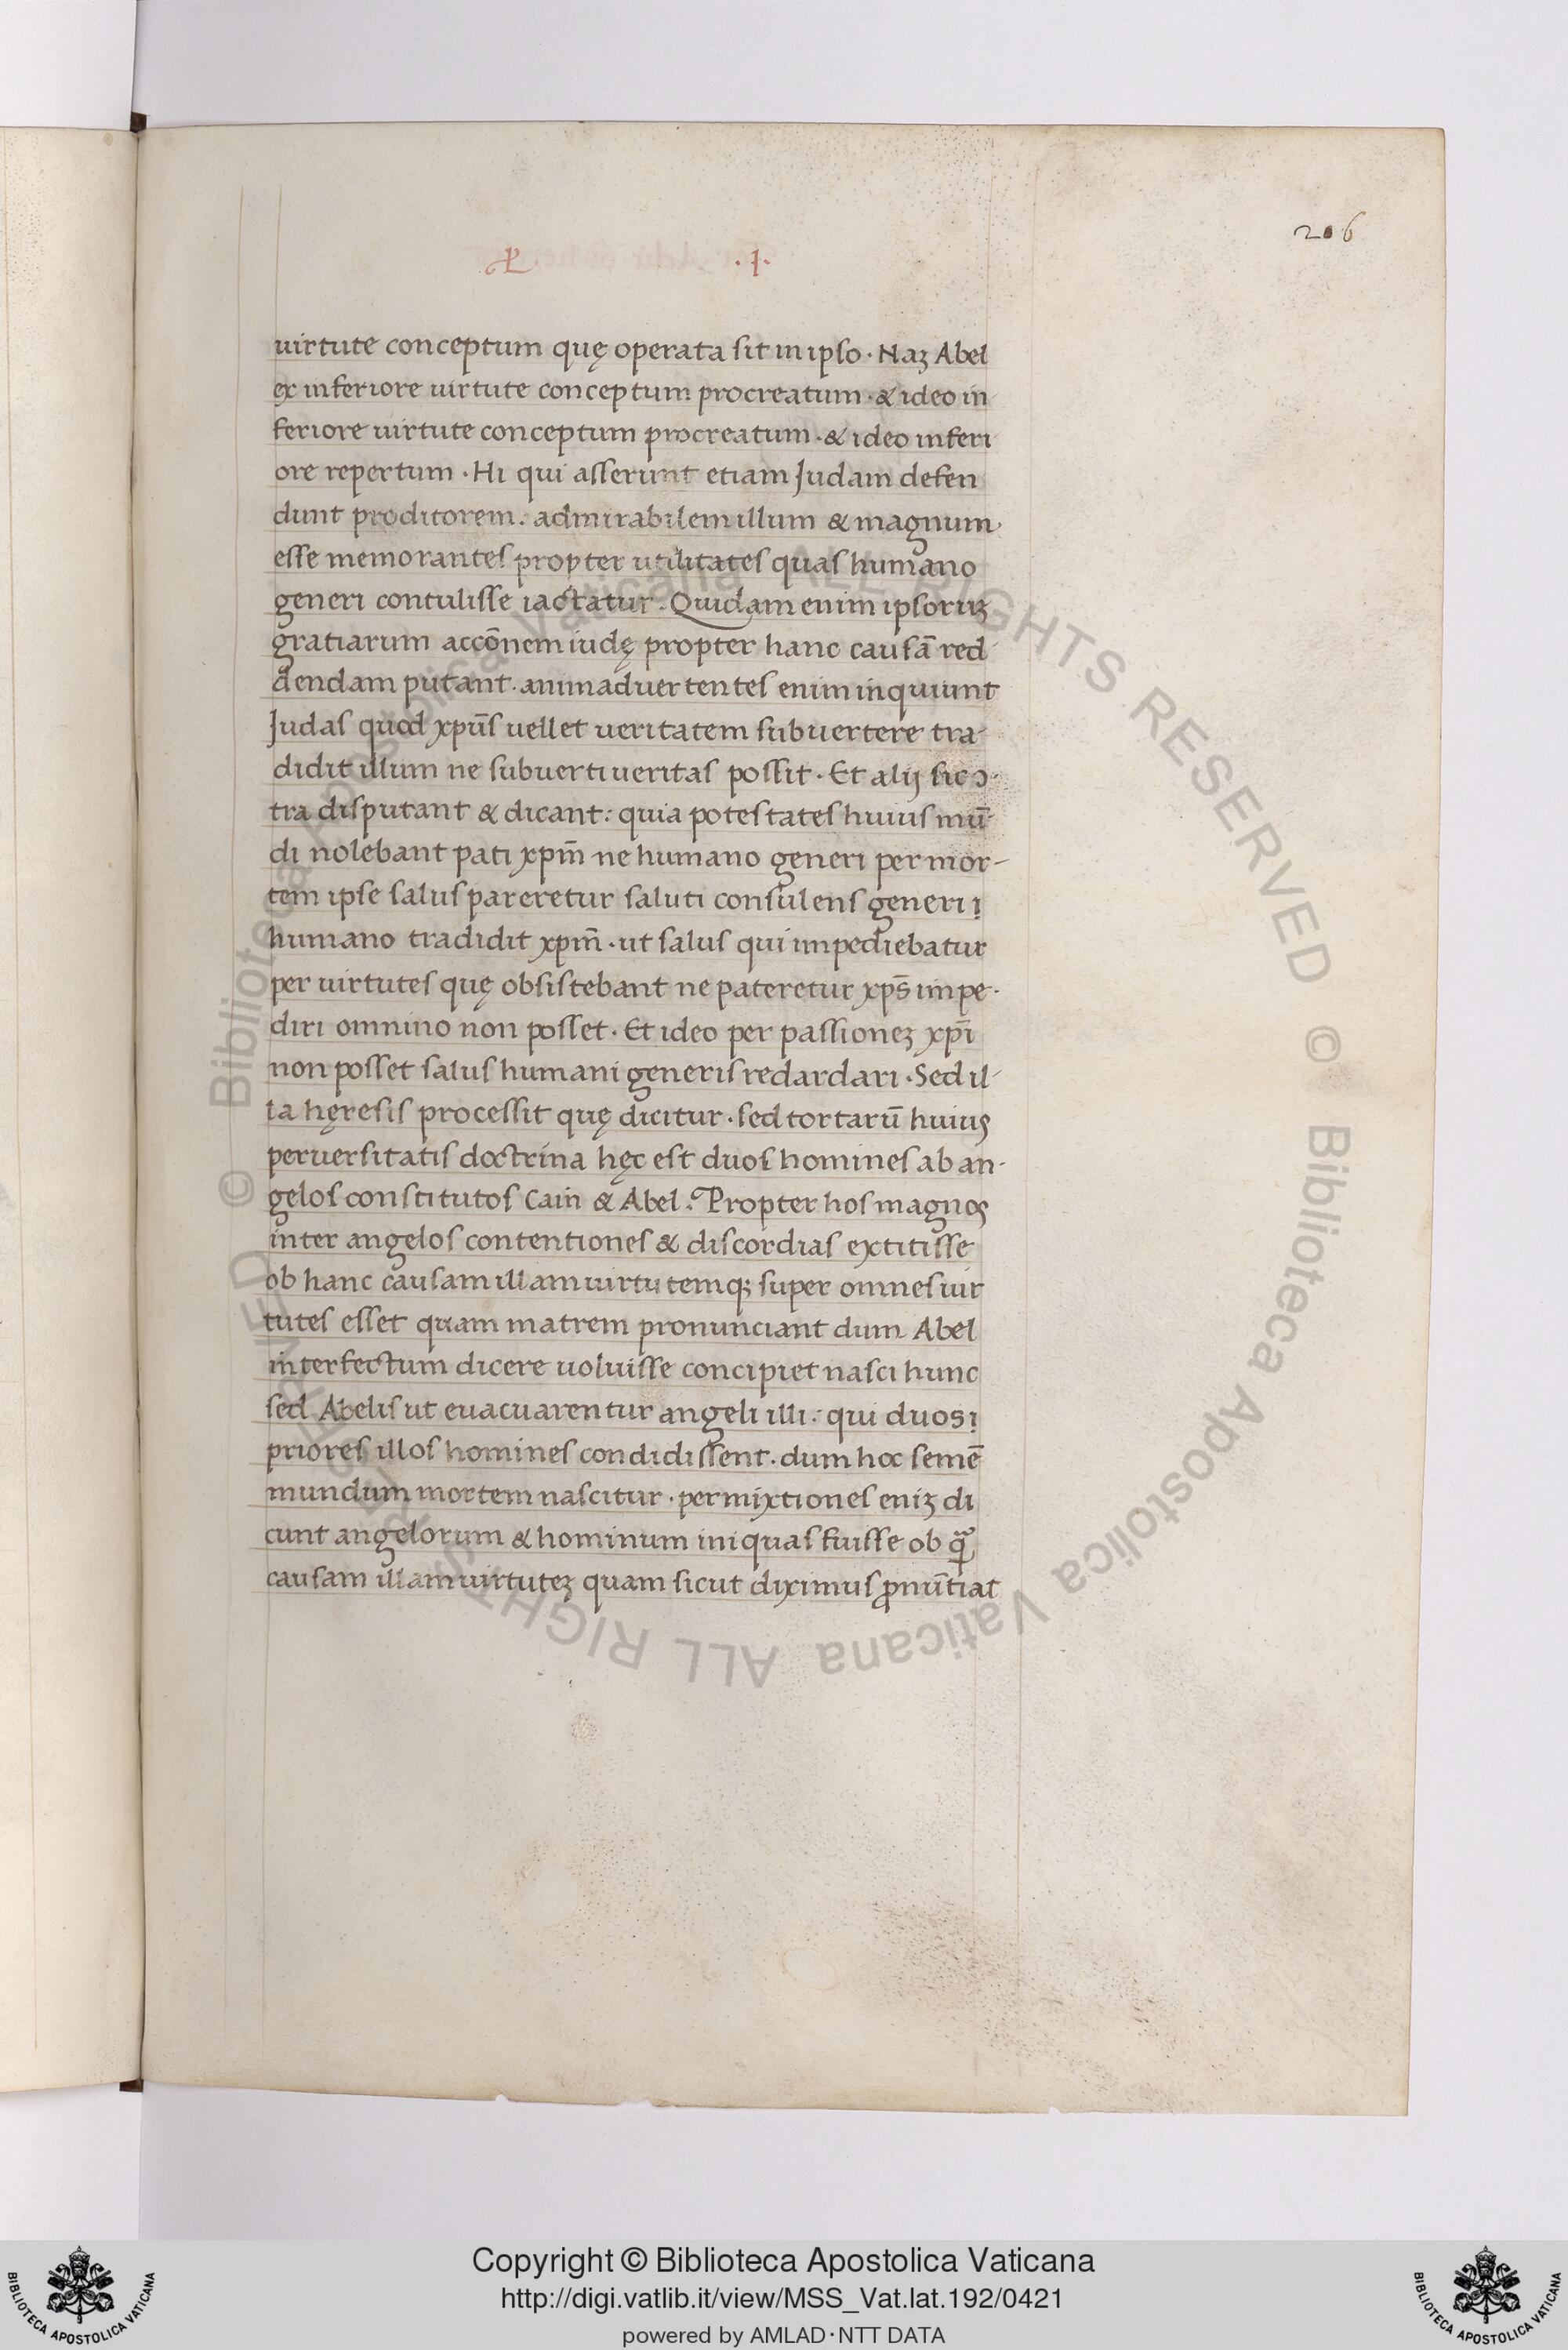 206
·I·
uirtute conceptum quę operata sit in ipso · Naʒ Abel
ex inferiore uirtute conceptum procreatum · & ideo in
feriore uirtute conceptum procreatum · & ideo inferi
ore repertum · Hi qui asserunt etiam Judam defen
dunt proditorem. admirabilem illum & magnum
esse memorantes propter utilitates quas humano
generi contulisse iactatur · Quidam enim ipsoruʒ
gratiarum accōnem iudę propter hanc causā red
dendam putant · animaduertentes enim inquiunt
Judas quod xpūs uellet ueritatem subuertere tra-
didit illum ne subuerti ueritas possit · Et alij sic ɔ-
tra disputant & dicant: quia potestates huius mū
di nolebant pati xpm̄ ne humano generi per mor-
tem ipse salus pareretur saluti consulens generi ı
humano tradidit xpm̄ · ut salus qui impediebatur
per uirtutes quę obsistebant ne pateretur xps̄ impe-
diri omnino non posset · Et ideo per passioneʒ xpī
non posset salus humani generis redardari · Sed il-
la hęresis processit quę dicitur · sed tortarū huius
peruersitatis doctrina hęc est duos homines ab an-
gelos constitutos Cain & Abel: Propter hos magnos
inter angelos contentiones & discordias extitisse
ob hanc causam illam uirtutemqꝫ super omnes uir
tutes esset quam matrem pronunciant dum Abel
interfectum dicere uoluisse concipiet nasci hunc
sed Abelis ut euacuarentur angeli illi: qui duos ı
priores illos homines condidissent · dum hoc semē
mundum mortem nascitur · permixtiones eniʒ di
cunt angelorum & hominum iniquas fuisse ob quā
causam illam uirtuteʒ quam sicut diximus ꝓnūtiat
© Biblioteca Apostolica Vaticana ALL RIGHTS RESERVED © Biblioteca Apostolica Vaticana ALL RIGHTS RESERVED
BIBLIOTECA APOSTOLICA VATICANA
Copyright © Biblioteca Apostolica Vaticana
http://digi.vatlib.it/view/MSS_Vat.lat.192/0421
powered by AMLAD·NTT DATA
BIBLIOTECA APOSTOLICA VATICANA